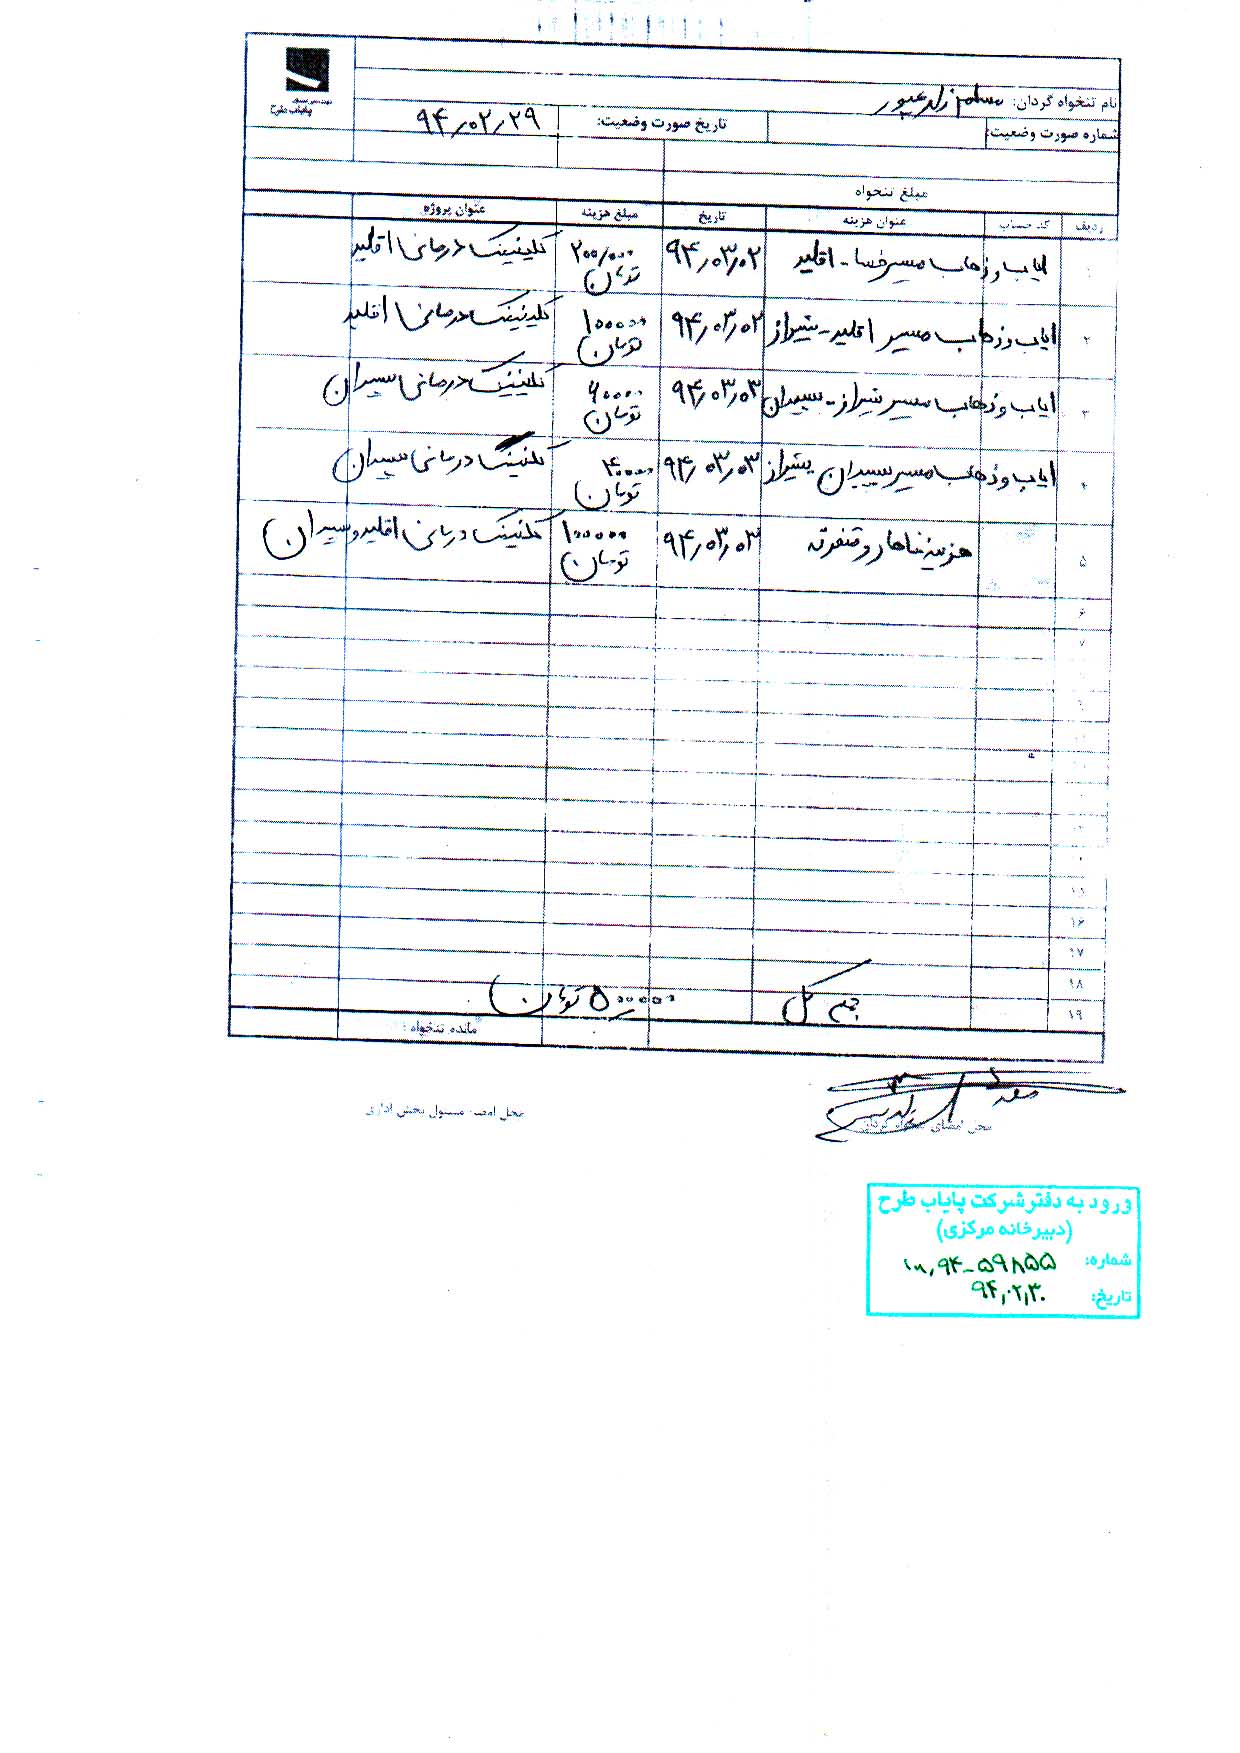 پایاب طرح
نام تنخواه گردان:
شماره صورت وضعیت: تاریخ صورت وضعیت: ۹۴٫۰۲٫۲۹
مبلغ تنخواه
ردیف کد حساب عنوان هزینه تاریخ مبلغ هزینه عنوان پروژه
ایاب و ذهاب مسیر فسا - اقلید ۹۴٫۰۳٫۰۲ ۲۰۰٫۰۰۰ تومان کلینیک درمانی اقلید
۲ ایاب و ذهاب مسیر اقلید - شیراز ۹۴٫۰۳٫۰۲ ۱۰۰۰۰۰ تومان کلینیک درمانی اقلید
۳ ایاب و ذهاب مسیر شیراز - سپیدان ۹۴٫۰۳٫۰۳ ۶۰۰۰۰ تومان کلینیک درمانی سپیدان
۴ ایاب و ذهاب مسیر سپیدان شیراز ۹۴٫۰۳٫۰۳ ۴۰۰۰۰ تومان کلینیک درمانی سپیدان
۵ هزینه ناهار و متفرقه ۹۴٫۰۳٫۰۳ ۱۰۰۰۰۰ تومان کلینیک درمانی اقلید و سپیدان
۶
۷
۱۶
۱۷
۱۸
۱۹ جمع کل ۵۰۰۰۰۰ تومان
مانده تنخواه :
محل امضای تنخواه گردان محل امضاء مسئول بخش اداری
ورود به دفتر شرکت پایاب طرح
(دبیرخانه مرکزی)
شماره: ۱۰۸٫۹۴-۵۹۸۵۵
تاریخ: ۹۴٫۰۲٫۳۰